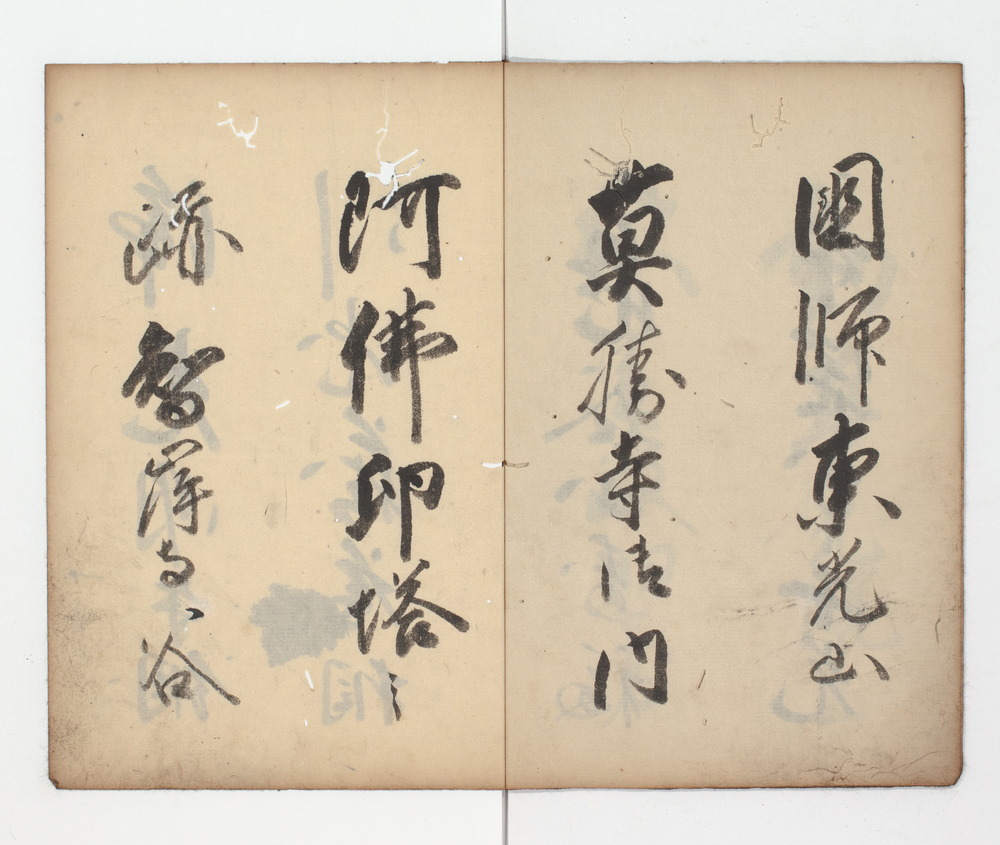 國師東光山
莫勝寺法門
阿佛卯塔之
跡智岸寺谷